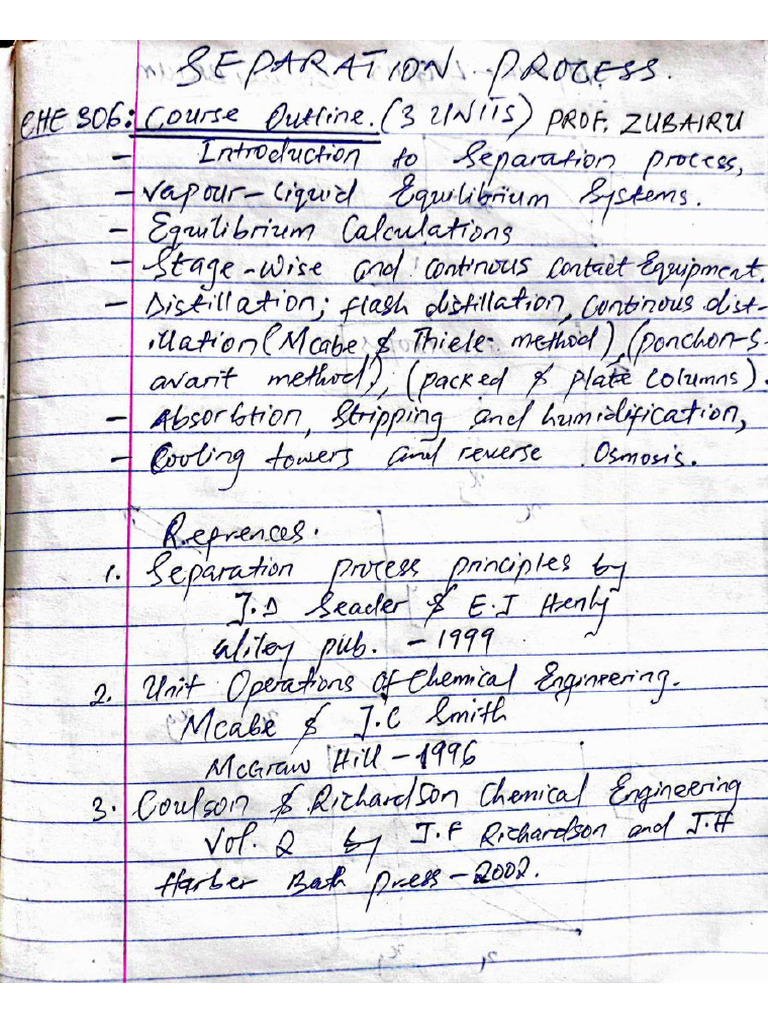 SEPARATION PROCESS.
CHE 306: Course Outline. (3 UNITS) PROF. ZUBAIRU
- Introduction to Separation process,
- Vapour-Liquid Equilibrium Systems.
- Equilibrium Calculations
- Stage-wise and continous contact Equipment.
- Distillation; flash distillation, continous dist-
illation (Mcabe & Thiele- method), (ponchon-s-
avarit method), (packed & plate columns).
- Absorbtion, Stripping and humidification,
- Cooling towers and reverse Osmosis.
Refrences.
1. Separation process principles by
J.D Seader & E.J Henly
Wiley pub. - 1999
2. Unit Operations of Chemical Engineering.
Mcabe & J.C Smith
McGraw Hill - 1996
3. Coulson & Richardson Chemical Engineering
Vol. 2 by J.F Richardson and J.H
Harber Bath press - 2002.